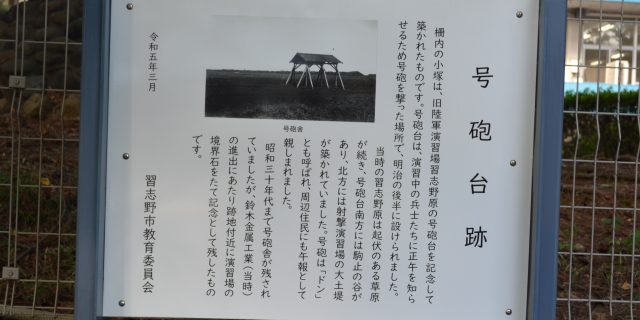 号砲台跡
柵内の小塚は、旧陸軍演習場習志野原の号砲台を記念して
築かれたものです。号砲台は、演習中の兵士たちに正午を知ら
せるため号砲を撃った場所で、明治の後半に設けられました。
当時の習志野原は起伏のある草原
が続き、号砲台南方には駒止の谷が
あり、北方には射撃演習場の大土堤
が築かれていました。号砲は「ドン」
とも呼ばれ、周辺住民にも午報として
親しまれました。
昭和三十年代まで号砲舎が残され
ていましたが、鈴木金属工業(当時)
の進出にあたり跡地付近に演習場の
境界石をたて記念として残したもの
です。
号砲舎
令和五年三月
習志野市教育委員会